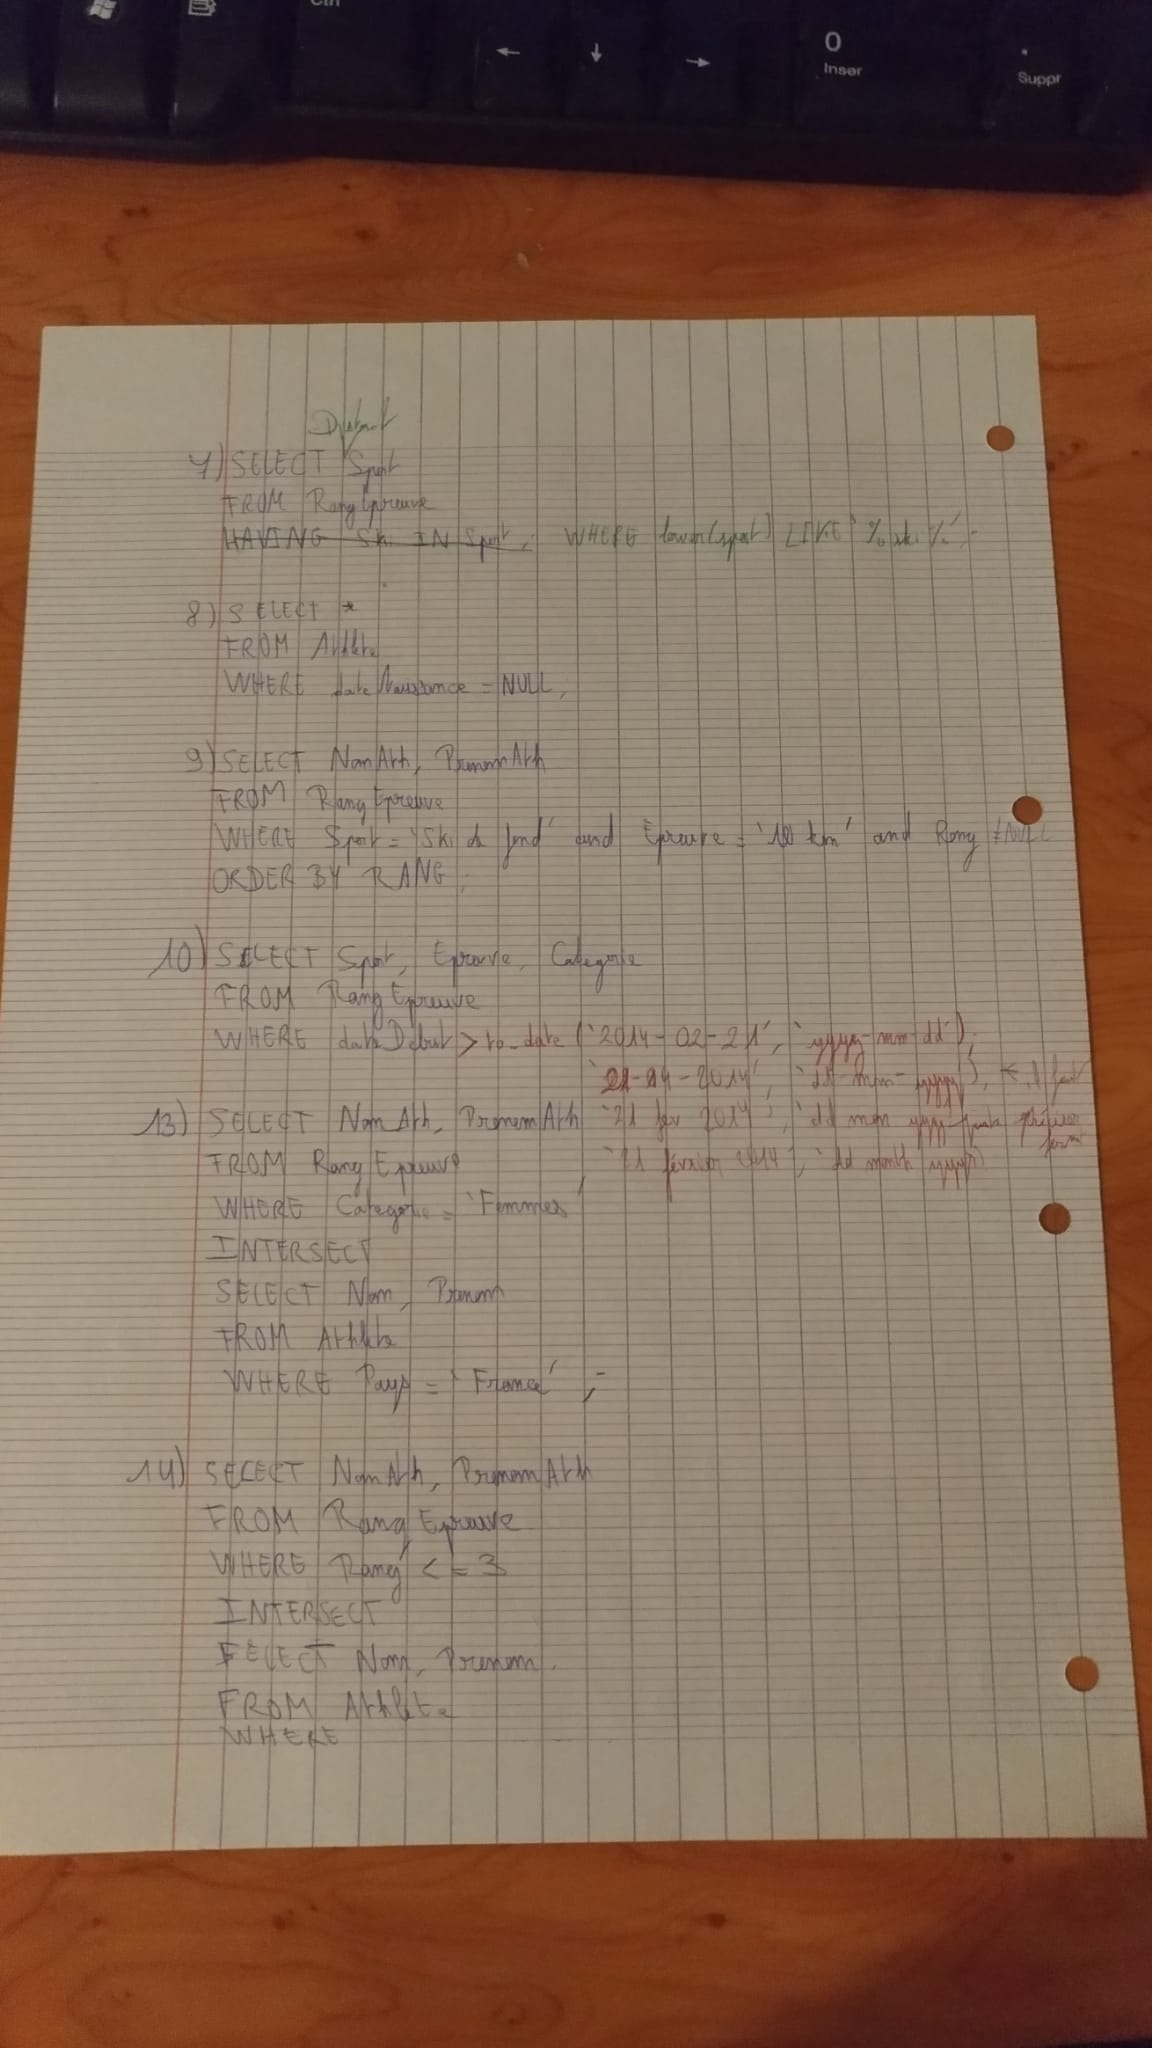 Ctrl
0
Inser
.
Suppr
Distinct
7) SELECT Sport
FROM RangEpreuve
HAVING Ski IN Sport; WHERE lower(sport) LIKE '%ski%';
8) SELECT *
FROM Athlete
WHERE dateNaissance = NULL;
9) SELECT NomAth, PrenomAth
FROM RangEpreuve
WHERE Sport = 'Ski de fond' and Epreuve = '10 km' and Rang ≠ NULL
ORDER BY RANG;
10) SELECT Sport, Epreuve, Categorie
FROM RangEpreuve
WHERE dateDebut > to_date ('2014-02-21', 'yyyy-mm-dd');
2014', 'dd-mm-yyyy'), ← il faut
13) SELECT NomAth, PrenomAth '21 fev 2014', 'dd mon yyyy'
FROM RangEpreuve '21 février 2014', 'dd month yyyy'
WHERE Categorie = 'Femmes'
INTERSECT
SELECT Nom, Prenom
FROM Athlete
WHERE Pays = 'France';
14) SELECT NomAth, PrenomAth
FROM RangEpreuve
WHERE Rang <= 3
INTERSECT
SELECT Nom, Prenom
FROM Athlete
WHERE